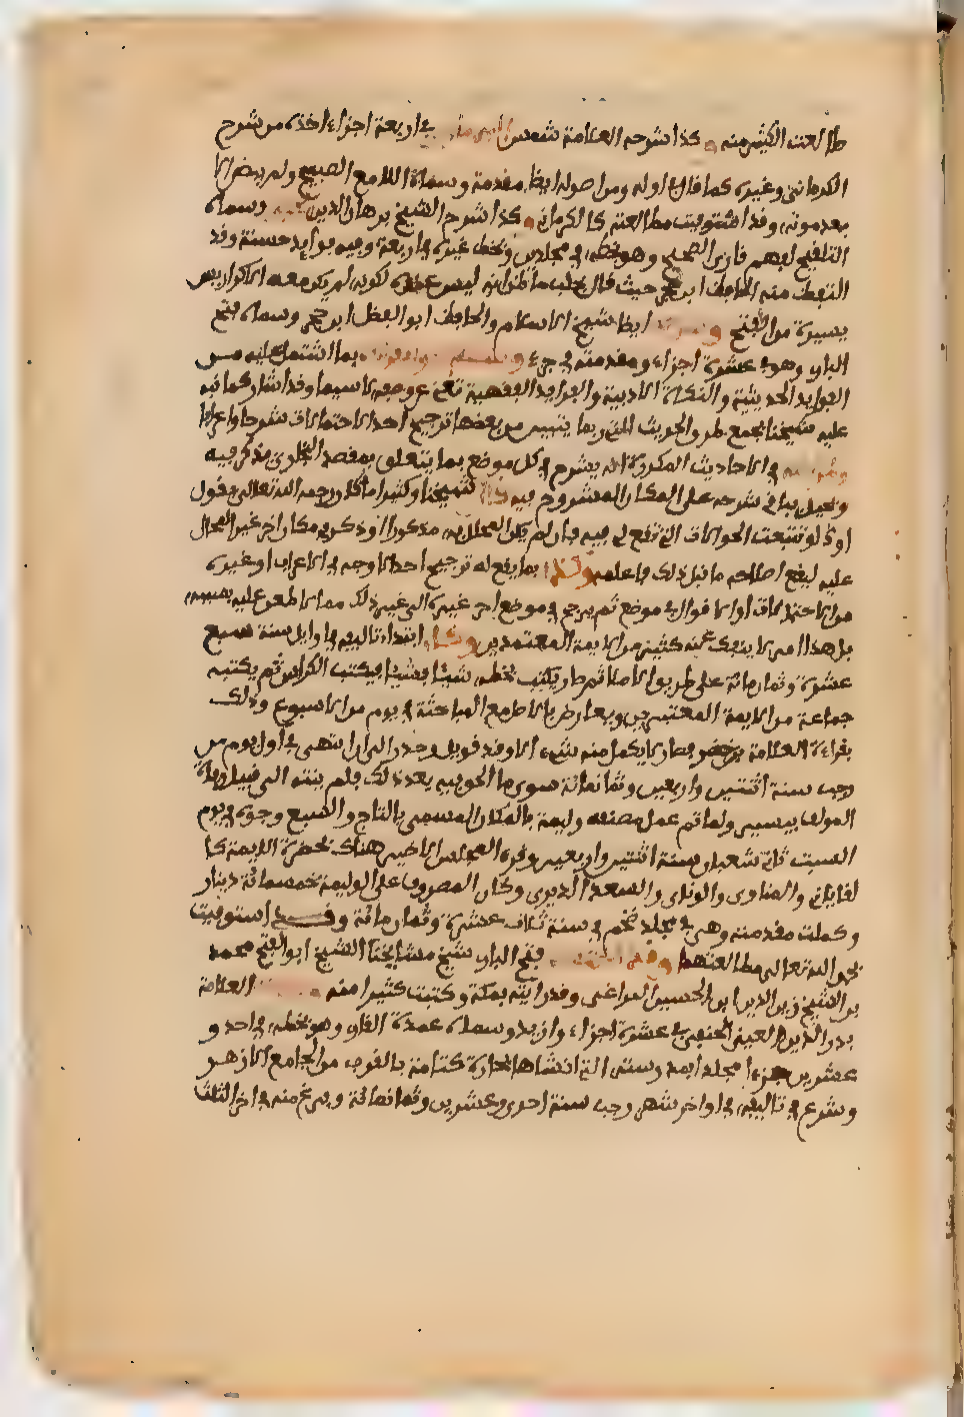 طالعت الكثير منه وكذا شرحه العلامة شمس الدين في اربعة اجزاء اخذه من شرح
الكرماني وغيره كما قال في اوله ومن اصوله ايضا مقدمة وسماه اللامع الصبيح ولم يبيض الا
بعد موته وقد استوفيت مطالعته كالكرماني وكذا شرح الشيخ برهان الدين وسماه
التلقيح لفهم قارئ الصحيح وهو بخطه في مجلدين وبخط غيره في اربعة وفيه فوايد حسنة وقد
التقط منه الحافظ ابن حجر حيث كان بحلب ما ظن انه ليس عنده لكونه لم يكن معه الا كراريس
يسيرة من الفتح ايضا شيخ الاسلام والحافظ ابو الفضل ابن حجر وسماه فتح
الباري وهو في عشرة اجزاء ومقدمته في جزء بما اشتمل عليه من
الفوايد الحديثية والنكات الادبية والفرايد الفقهية تغني عن وصفه لا سيما وقد امتاز كما نبه
عليه شيخنا بجمع طرق الحديث التي ربما يتبين من بعضها ترجيح احد الاحتمالات شرحا واعرابا
في الاحاديث المكررة انه يشرح في كل موضع بما يتعلق بمقصد البخاري بذكره فيه
ويحيل بباقي شرحه على المكان المشروح فيه شيخنا وكثيرا ما كان رحمه الله تعالى يقول
اود لو تتبعت الحوالات التي تقع لي فيه فان لم يكن المحال به مذكورا او ذكر في مكان اخر غير المحال
عليه ليقع اصلاحه ما فعل ذلك فاعلمه وكذا بما يقع له ترجيح احد الاوجه في الاعراب او غيره
من الاحتمالات او الاقوال في موضع ثم يرجح في موضع اخر غيره الى غير ذلك مما لا طعن عليه بسببه
بل هذا امر لا ينفك عنه كثير من الايمة المعتمدين وكان ابتداء تاليفه في اوايل سنة سبع
عشرة وثمان مائة على طريق الاملا ثم صار يكتب بخطه شيئا فشيئا فيكتب الكراس ثم يكتبه
جماعة من الايمة المعتبرين ويعارض بالاصل مع المباحثة في يوم من الاسبوع وذلك
بقراءة العلامة بن خضر فصار لا يكمل منه شيء الا وقد قوبل وحرر الى ان انتهى في اول يوم من
رجب سنة اثنتين واربعين وثمانمائة سوى ما الحق فيه بعد ذلك فلم ينته الى قبيل وفاة
المولف بيسير ولما تم عمل مصنفه وليمة بالمكان المسمى بالتاج والسبع وجوه في يوم
السبت ثاني شعبان سنة اثنتين واربعين وقرء المجلس الاخير هناك بحضرة الايمة كا
لقاياتي والمناوي والونائي والسعد الديري وكان المصروف على الوليمة خمسمائة دينار
وكملت مقدمته وهي في مجلد ضخم في سنة ثلاث عشرة وثمان مائة وقد استوفيت
بحمد الله تعالى مطالعتهما فتح الباري شيخ مشايخنا الشيخ ابو الفتح محمد
بن الشيخ زين الدين ابن الحسين المراغي وقد رايته بمكة وكتبت كثيرا منه العلامة
بدر الدين العيني الحنفي في عشرة اجزاء وازيد وسماه عمدة القاري وهو بخطه في احد و
عشرين جزءا مجلدا بمدرسته التي انشاها بحارة كتامة بالقرب من الجامع الازهر
وشرع في تاليفه في اواخر شهر رجب سنة احدى وعشرين وثمانمائة وفرغ منه في اخر الثلث